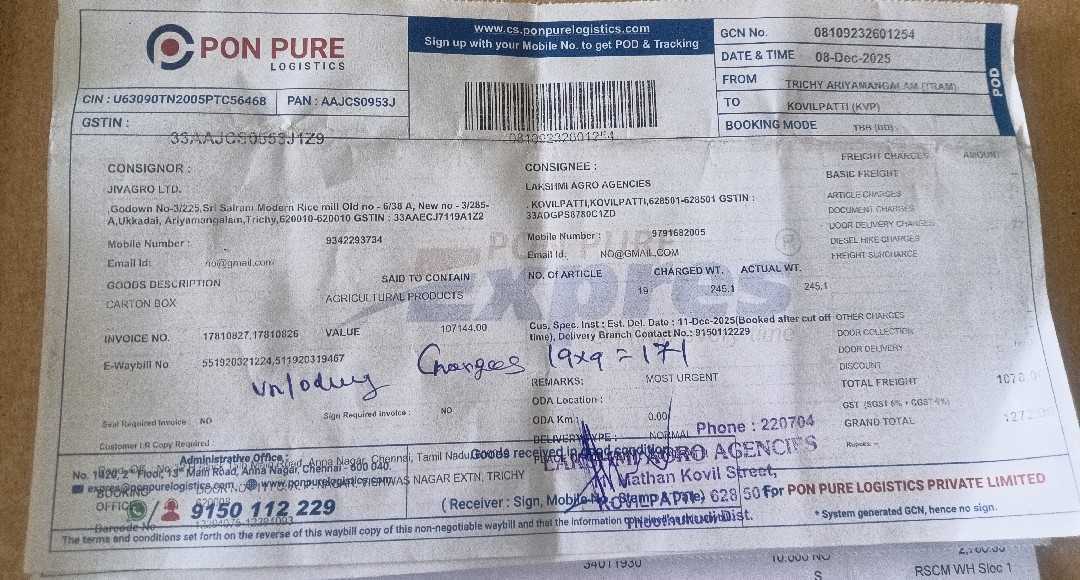 PON PURE
LOGISTICS
www.cs.ponpurelogistics.com
Sign up with your Mobile No. to get POD & Tracking
GCN No. 08109232601254
DATE & TIME 08-Dec-2025
FROM TRICHY ARIYAMANGALAM (TRAM)
TO KOVILPATTI (KVP)
BOOKING MODE TBB (DD)
POD
CIN : U63090TN2005PTC56468 PAN : AAJCS0953J
GSTIN :
33AAJCS0953J1Z9
08109232601254
CONSIGNOR :
JIVAGRO LTD.
,Godown No-3/225,Sri Sairam Modern Rice mill Old no - 6/38 A, New no - 3/285-
A,Ukkadai, Ariyamangalam,Trichy,620010-620010 GSTIN : 33AAECJ7119A1Z2
Mobile Number : 9342293734
Email Id: no@gmail.com
CONSIGNEE :
LAKSHMI AGRO AGENCIES
, KOVILPATTI,KOVILPATTI,628501-628501 GSTIN :
33ADGPS8780C1ZD
Mobile Number : 9791682005
Email Id: NO@GMAIL.COM
PON PURE
Expres
GOODS DESCRIPTION SAID TO CONTAIN
CARTON BOX AGRICULTURAL PRODUCTS
NO. Of ARTICLE CHARGED WT. ACTUAL WT.
19 245.1 245.1
INVOICE NO. 17810827,17810826 VALUE 107144.00
E-Waybill No 551920321224,511920319467
Cus. Spec. Inst : Est. Del. Date : 11-Dec-2025(Booked after cut off
time), Delivery Branch Contact No.: 9150112229
Charges 19x9 = 171
REMARKS: MOST URGENT
ODA Location :
ODA Km : 0.00
DELIVERY TYPE : NORMAL
Seal Required Invoice : NO Sign Required Invoice : NO
Customer I.R Copy Required :
FREIGHT CHARGES AMOUNT
BASIC FREIGHT
ARTICLE CHARGES
DOCUMENT CHARGES
DOOR DELIVERY CHARGES
DIESEL HIKE CHARGES
FREIGHT SURCHARGE
OTHER CHARGES
DOOR COLLECTION
DOOR DELIVERY
DISCOUNT
TOTAL FREIGHT
GRAND TOTAL
Rupees: -
Phone : 220704
LAKSHMI AGRO AGENCIES
Mathan Kovil Street,
KOVILPATTI 628 50
Thoothukudi Dist.
Administrative Office :
No. 1420, 2nd Floor, 13th Main Road, Anna Nagar, Chennai - 600 040.
www.ponpurelogistics.com
9150 112 229
Goods received in good condition
(Receiver : Sign, Mobile No., Stamp & Date)
For PON PURE LOGISTICS PRIVATE LIMITED
* System generated GCN, hence no sign.
BOOKING
OFFICE
VISHWAS NAGAR EXTN, TRICHY
Barcode No
The terms and conditions set forth on the reverse of this waybill copy of this non-negotiable waybill and that the information
34011930
10.000 NO
S
RSCM WH Sloc 1